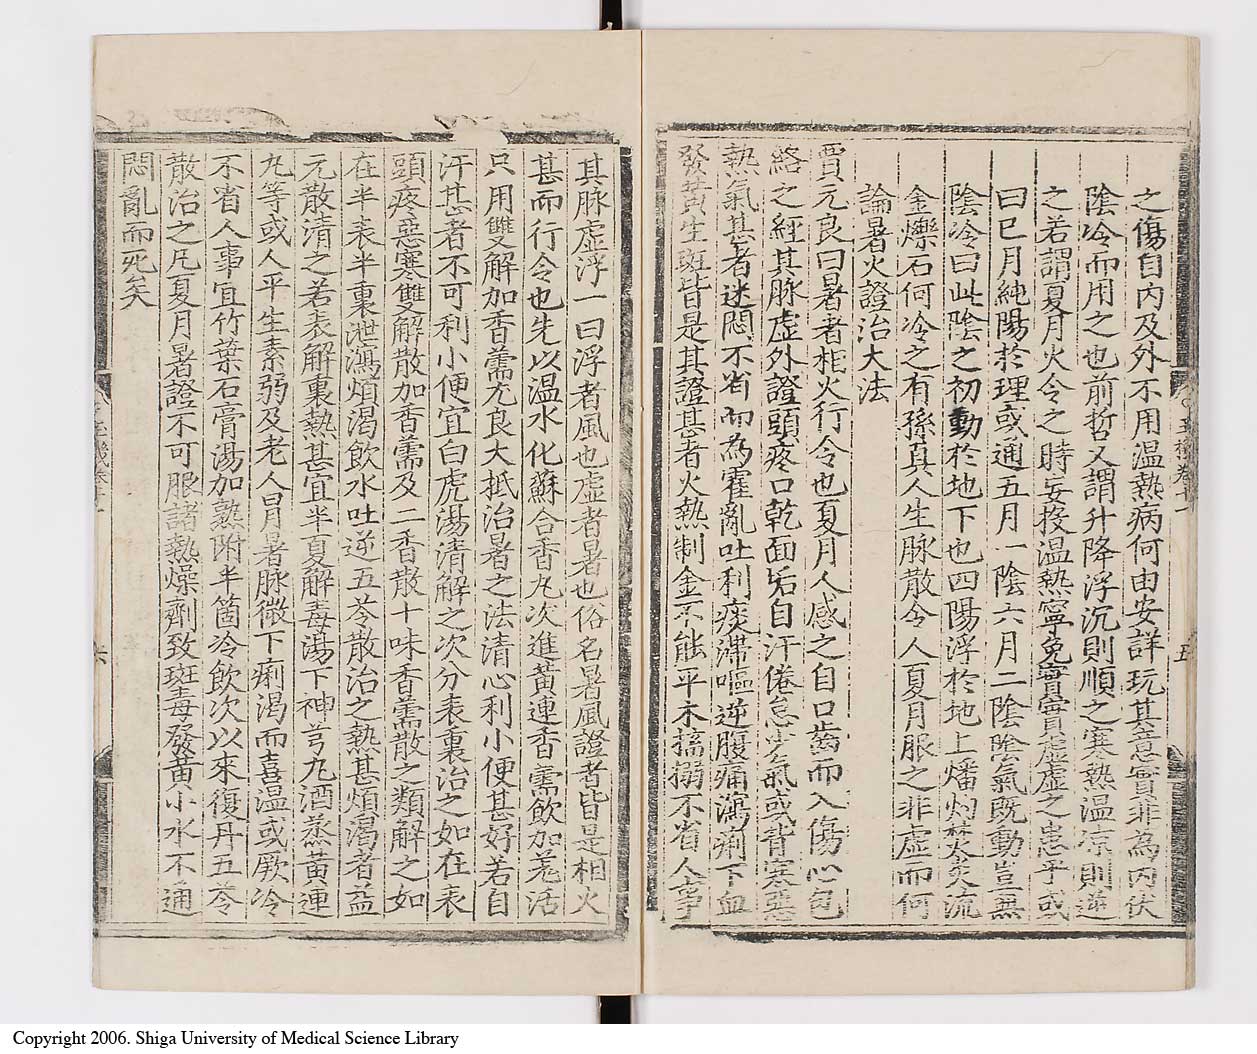 之傷自内及外不用温熱病何由安詳玩其意實非為内伏
陰冷而用之也前哲又謂升降浮沉則順之寒熱温凉則逆
之若謂夏月火令之時妄投温熱寧免實實虚虚之患乎或
曰巳月純陽於理或通五月一陰六月二陰陰氣既動豈無
陰冷曰此陰之初動於地下也四陽浮於地上燔灼焚炙流
金爍石何冷之有孫真人生脉散令人夏月服之非虚而何
論暑火證治大法
賈元良曰暑者相火行令也夏月人感之自口齒而入傷心包
絡之經其脉虚外證頭疼口乾面垢自汗倦怠少氣或背寒惡
熱氣甚者迷悶不省而為霍亂吐利痰滯嘔逆腹痛瀉痢下血
發黄生斑皆是其證甚者火熱制金不能平木搐搦不省人事
其脉虚浮一曰浮者風也虚者暑也俗名暑風證者皆是相火
甚而行令也先以温水化蘇合香丸次進黄連香薷飲加羌活
只用雙解加香薷尤良大抵治暑之法清心利小便甚好若自
汗甚者不可利小便宜白虎湯清解之次分表裏治之如在表
頭疼惡寒雙解散加香薷及二香散十味香薷散之類解之如
在半表半裏泄瀉煩渴飲水吐逆五苓散治之熱甚煩渴者益
元散清之若表解裏熱甚宜半夏解毒湯下神芎丸酒蒸黄連
丸等或人平生素弱及老人冒暑脉微下痢渴而喜温或厥冷
不省人事宜竹葉石膏湯加熟附半箇冷飲次以來復丹五苓
散治之凡夏月暑證不可服諸熱燥劑致斑毒發黄小水不通
悶亂而死矣